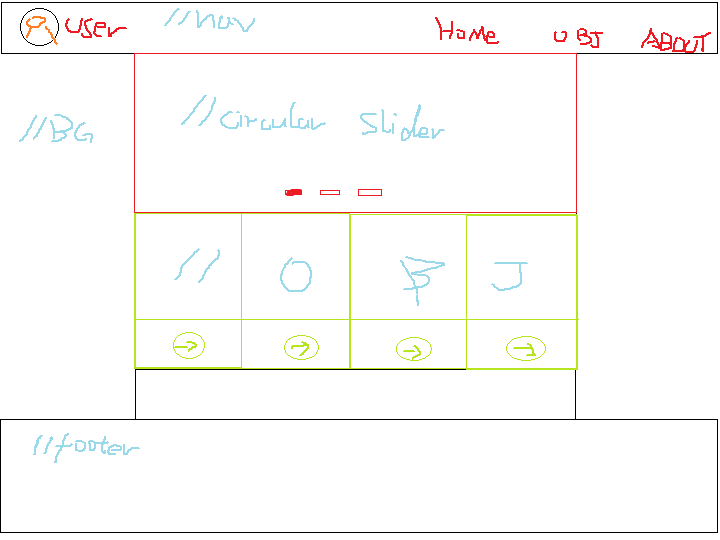 user //nav Home OBJ ABOUT
//BG
//circular slider
// O B J
//footer